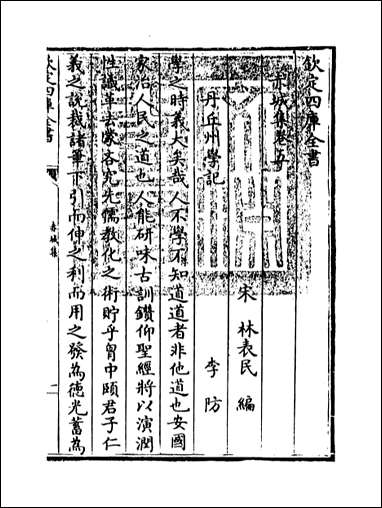 欽定四庫全書
赤城集卷五
宋 林表民 編
丹丘州學記
李防
學之時義大矣哉人不學不知道道者非他道也安國
家治人民之道也人能研味古訓鑽仰聖經將以演潤
性識革去蒙吝究先儒教化之術貯乎胷中頤君子仁
義之說裁諸筆下引而伸之利而用之發為徳光蓄為
欽定四庫全書
赤城集
二